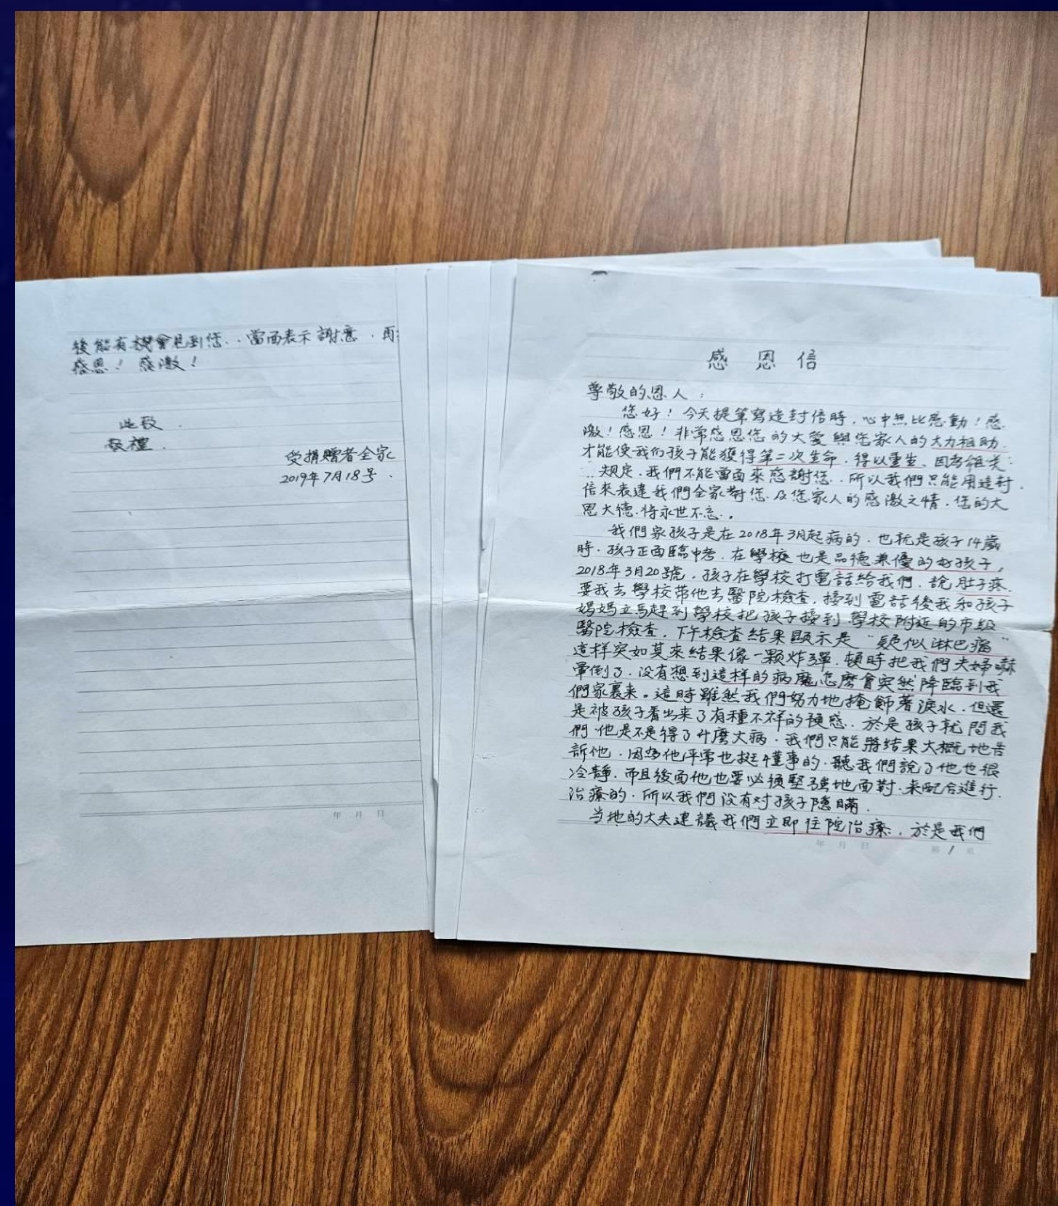 後能有機會見到您．當面表示謝意．再
感恩！感激！
此致．
敬禮．
受捐贈者全家
2019年7月18号．
年 月 日
感恩信
尊敬的恩人：
您好！今天提筆寫這封信時，心中無比感動！感
激！感恩！非常感恩您的大愛與您家人的大力相助．
才能使我们孩子能獲得第二次生命．得以重生．因為相关
規定．我們不能當面來感謝您．所以我們只能用這封
信來表達我們全家對您及您家人的感激之情．您的大
恩大德．将永世不忘．
我們家孩子是在2018年3月起病的．也就是孩子14歲
時．孩子正面臨中考．在學校也是品德兼優的好孩子，
2018年3月20號．孩子在學校打電話給我們．說肚子疼．
要我去學校帶他去醫院檢查．接到電話後我和孩子
媽媽立馬趕到學校把孩子接到學校附近的市级
醫院檢查．下午檢查結果顯示是"疑似淋巴瘤"
這样突如其來結果像一顆炸彈．頓時把我們夫婦嚇
暈倒了．没有想到這样的病魔怎麼會突然降臨到我
們家裏来。這時雖然我們努力地掩飾著淚水．但還
是被孩子看出來了有種不祥的預感．於是孩子就問我
們他是不是得了什麼大病．我們只能將結果大概地告
訴他．因為他平常也挺懂事的．聽我們說了他也很
冷靜．而且後面他也要必須堅强地面對．来配合進行
治療的．所以我們没有对孩子隱瞞．
当地的大夫建議我們立即住院治療．於是我們
年 月 日 第 1 頁